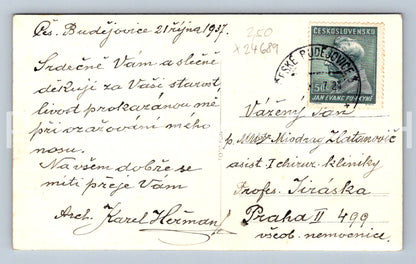 Čes. Budějovice 21 října 1937.
Srdečně Vám a slečně
děkuji za Vaši starost-
livost prokazanou mě
při ozařování mého
nosu.
Na všem dobře se
míti přeje Vám
Arch. Karel Heřman
2,50
x 24689
ČESKOSLOVENSKO
50
JAN EVANG. PURKYNĚ
ČESKÉ BUDĚJOVICE
Vážený Pan
p. Miodrag Zlatanovič
asist I chirur. kliniky
Profes. Jiráska
Praha II 499
všeob. nemocnice.